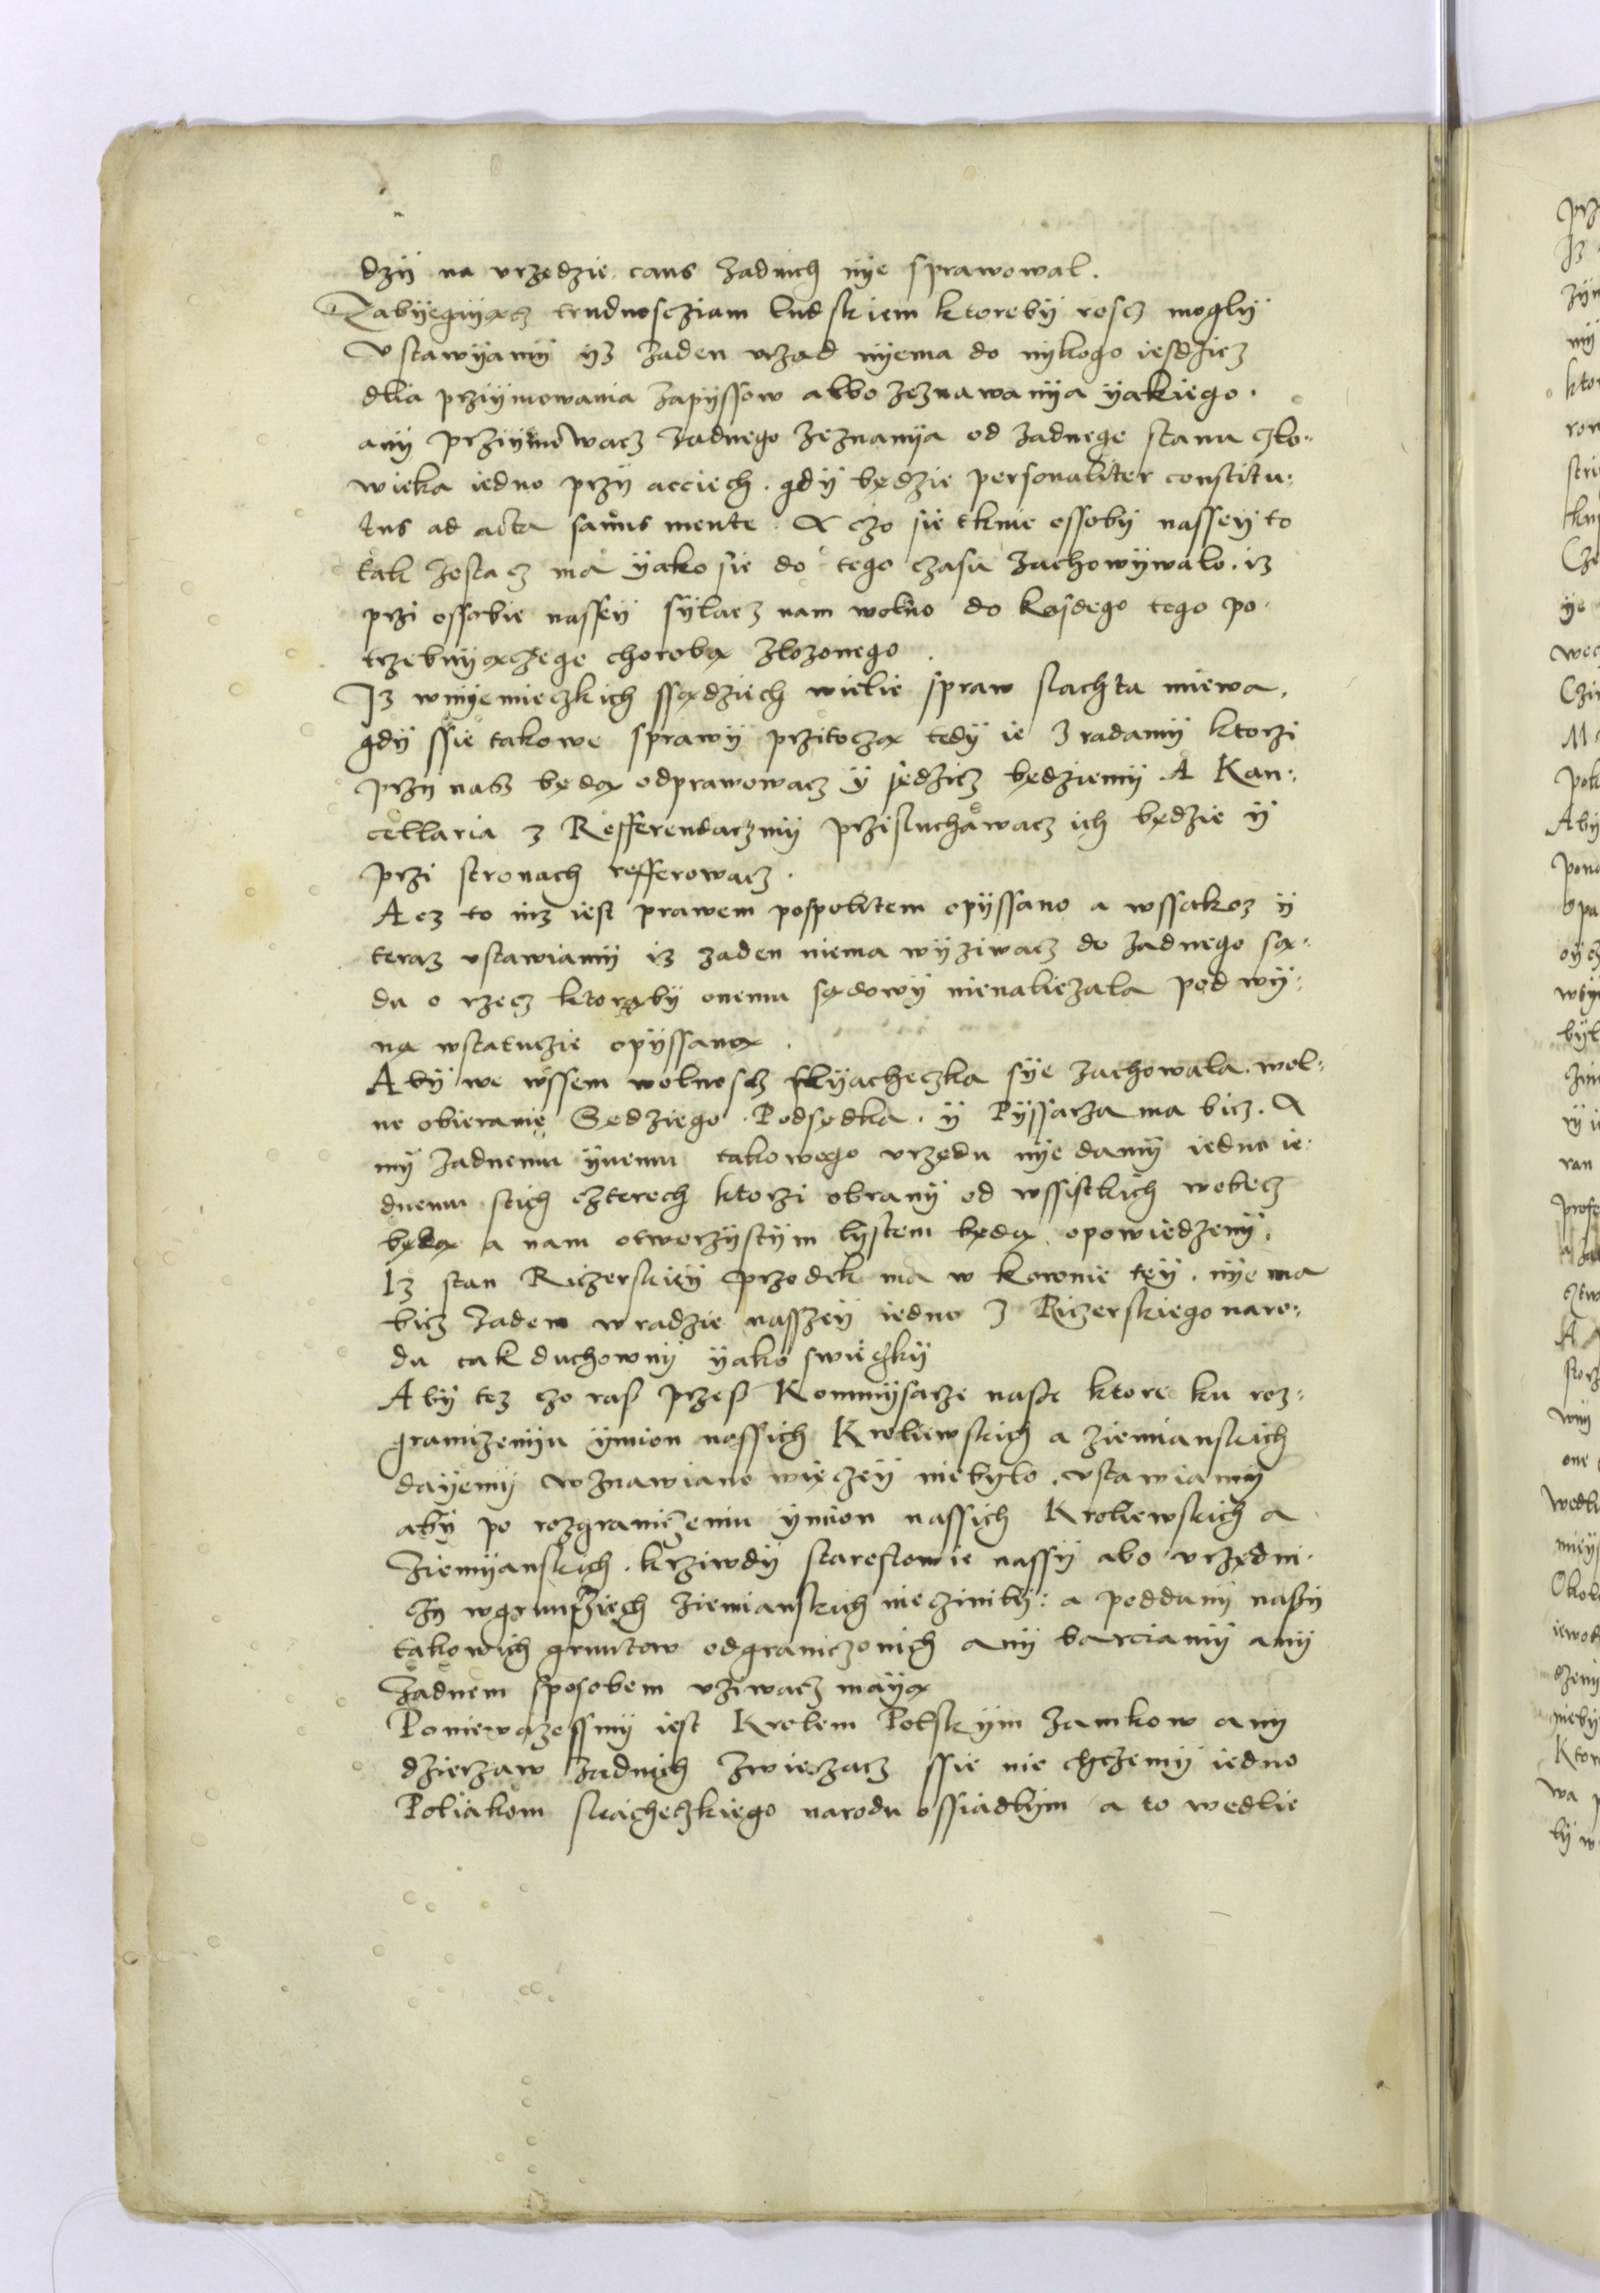 dzÿ na vrzędzie caus żadnich nÿe sprawowal.
Zabÿegaÿącz trudnoscziam ludskiem ktorebÿ roscz moglÿ
vstawÿamÿ ÿz żaden vrząd nÿema do nÿkogo iesdzicz
dlia prziÿmowania zapÿssow albo zeznawanÿa ÿakiego.
anÿ prziÿmowacz żadnego zeznanÿa od żadnego stanu czlo-
wieka iedno przÿ acciech. gdÿ będzie personaliter constitu-
tus ad acta sanus mente. A czo sie tknie ossobÿ nasseÿ to
tak zostacz ma ÿako sie do tego czasu zachowÿwalo. iz
przi ossobie nasseÿ sÿlacz nam wolno do kozdego tego po-
trzebuÿączego chorobą zlozonego.
Iz wnÿemieczkich ssądziech wielie spraw slachta miewa,
gdÿ ssie takowe sprawÿ przitoczą tedÿ ie z radamÿ ktorzi
przÿ nasz będą odprawowacz ÿ sędzicz będziemÿ. A Kan-
cellaria z Refferendarzmÿ przisluchawacz ich będzie ÿ
przi stronach refferowacz.
Acz to iuz iest prawem pospolitem opÿssano a wssakoz ÿ
teraz vstawiamÿ iz zaden niema wÿziwacz do żadnego są-
du o rzecz ktorąbÿ onemu sądowÿ nienaliezala pod wÿ-
ną wstatuczie opÿssaną.
Abÿ we wssem wolnoscz slÿacheczka sÿe zachowala. wol-
ne obieranie Sędziego. Podsędka. ÿ Pÿssarza ma bicz. A
mÿ żadnemu ÿnemu takowego vrzędu nÿe damÿ iedno ie-
dnemu stich czterech ktorzi obranÿ od wssistkich wobecz
będą a nam otworzÿstÿm lÿstem będą opowiedzenÿ.
Iz stan Riczerskieÿ przodek ma w koronie teÿ. nÿe ma
bicz żaden w radzie nasszeÿ iedno z Riczerskiego naro-
du tak duchownÿ ÿako swieczkÿ
Abÿ tez czo ras przes Kommÿsarze nasze ktore ku roz-
graniczenÿu ÿmion nassich Kroliewskich a ziemianskich
daÿemÿ wznawiano więczeÿ niebÿlo. vstawiamÿ
abÿ po rozgraniczeniu ÿmion nassich Kroliewskich a
Ziemÿanskich. krziwdÿ starostowie nassÿ abo vrzędni-
czÿ wgrunciech ziemianskich nieczinili: a poddanÿ nasÿ
takowich gruntow odgraniczonich anÿ barciamÿ anÿ
żadnem sposobem vziwacz maÿą
Poniewazessmÿ iest Krolem Polskÿm zamkow anÿ
dzierzaw żadnich zwierzacz ssie nie chczemÿ iedno
Poliakom slacheczkiego narodu ossiadlÿm a to wedlie